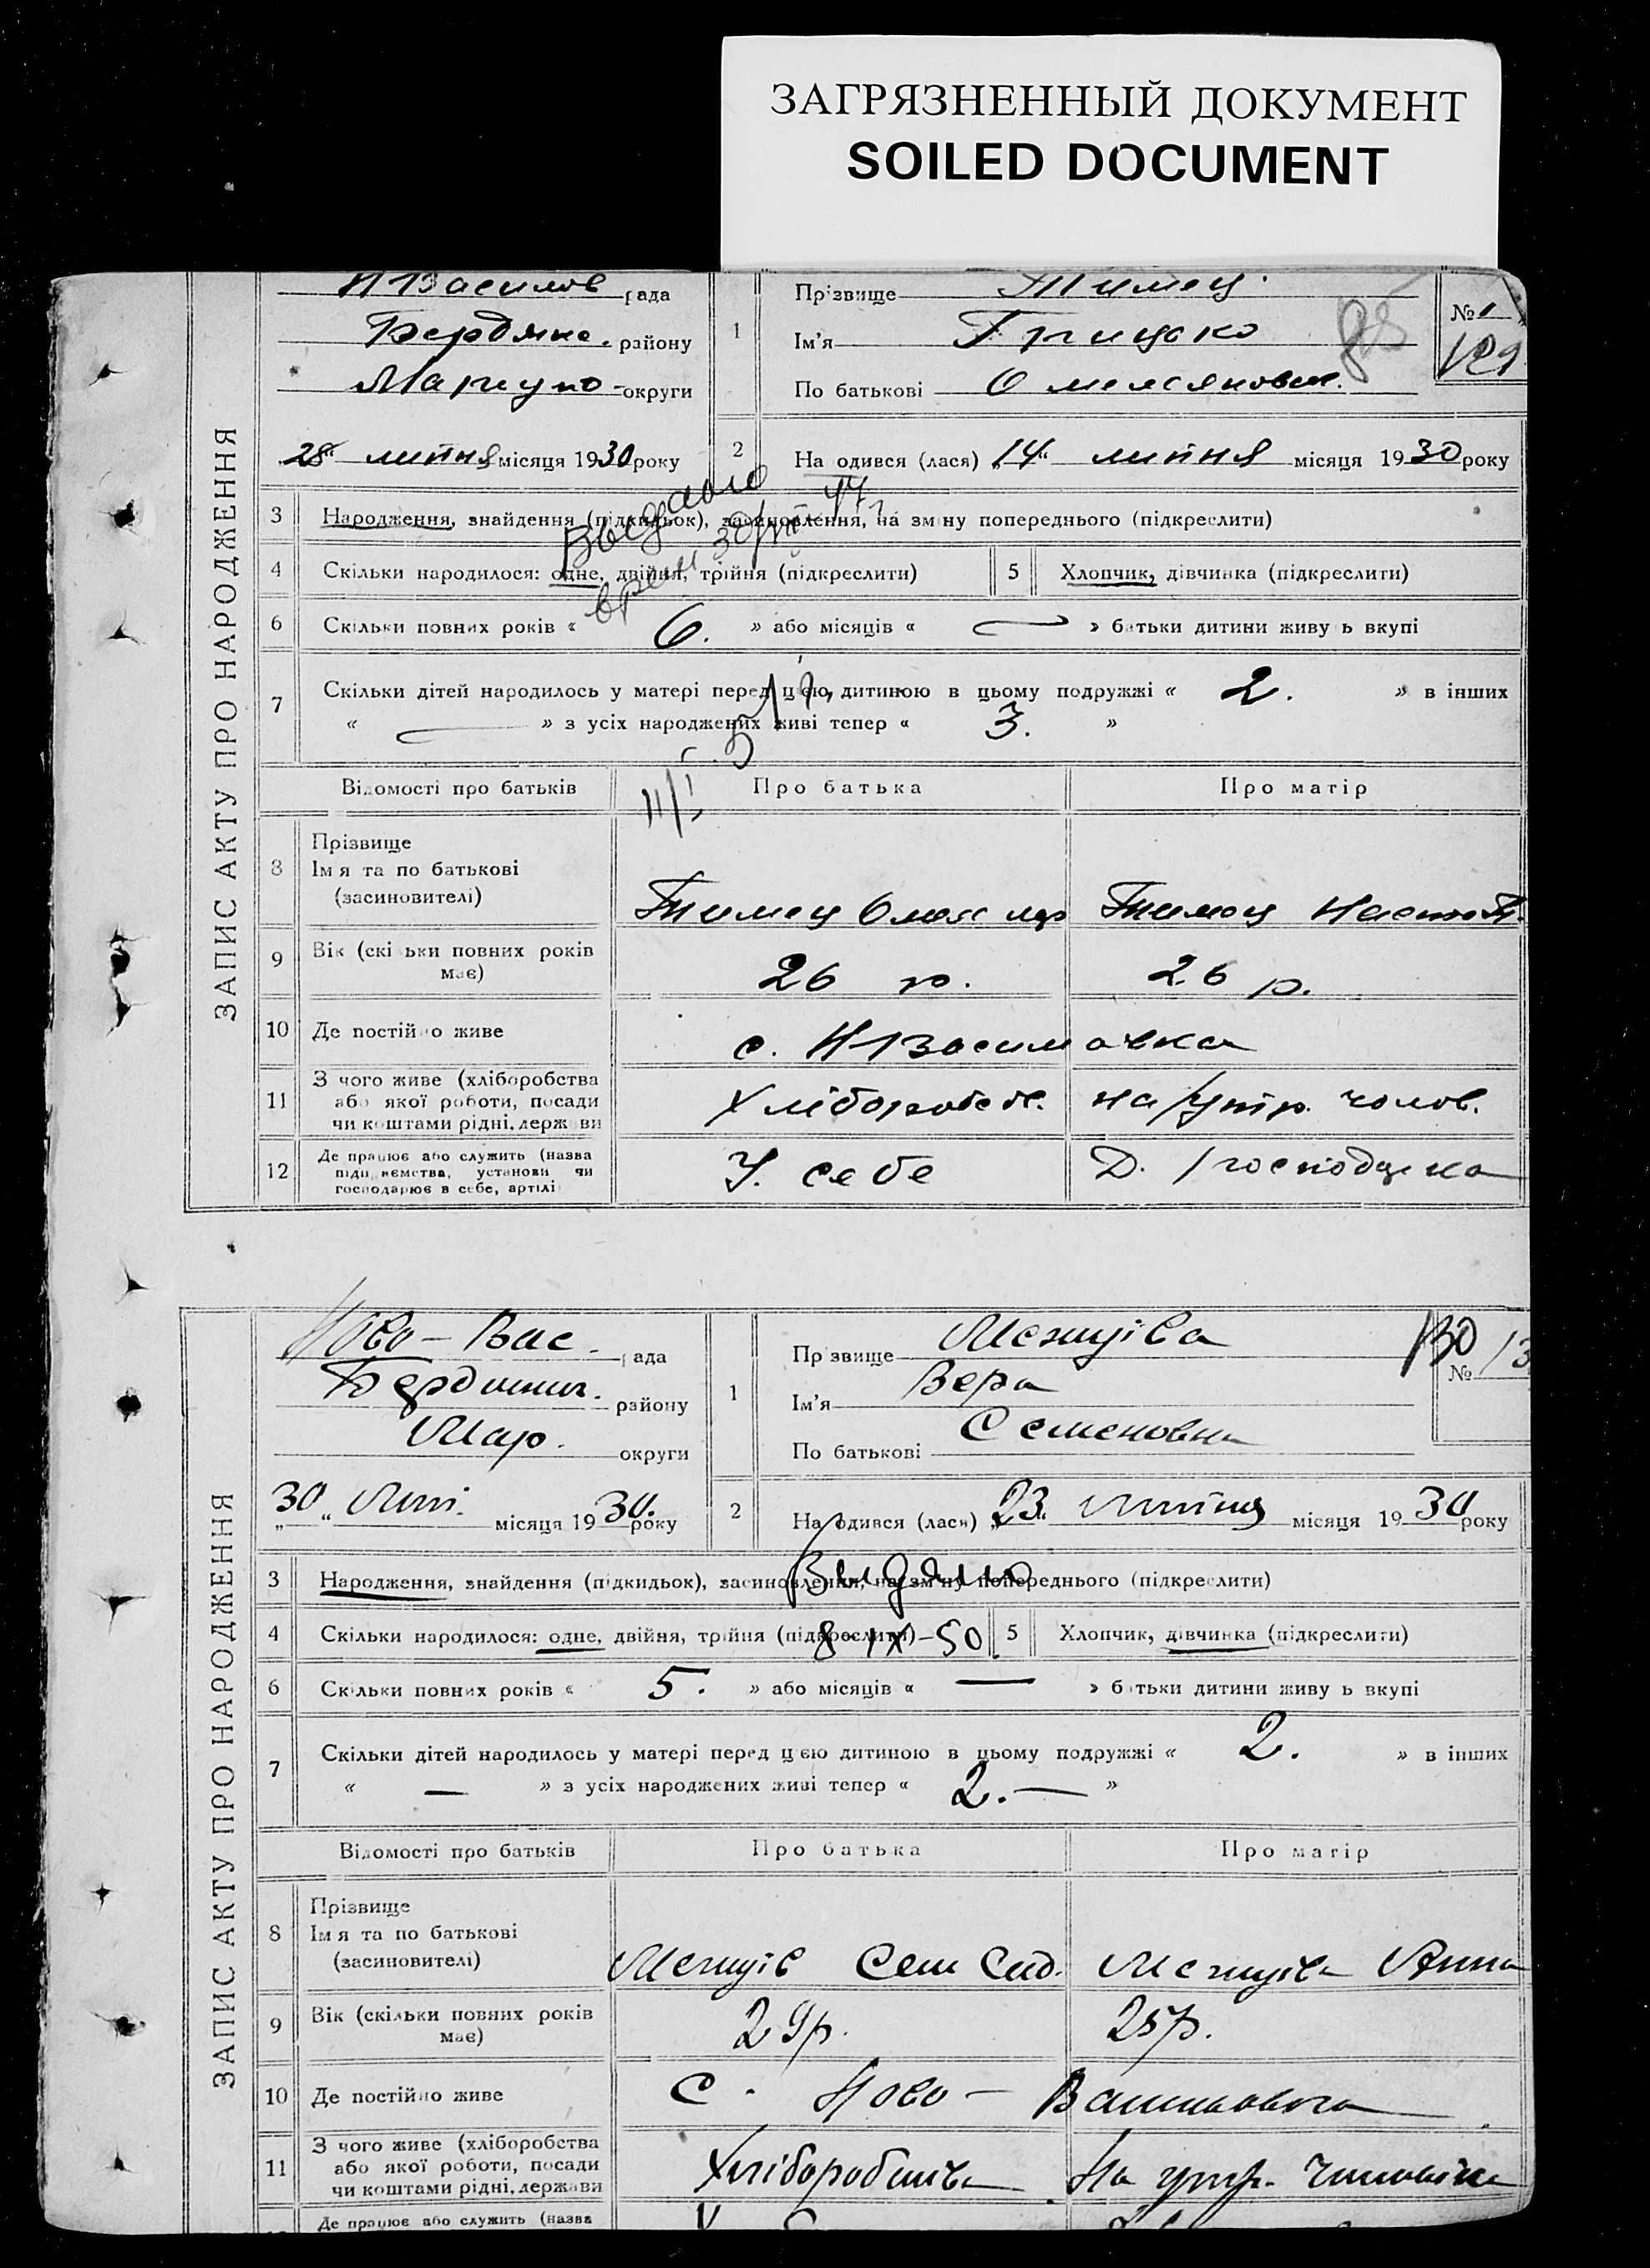 ЗАГРЯЗНЕННЫЙ ДОКУМЕНТ
SOILED DOCUMENT
ЗАПИС АКТУ ПРО НАРОДЖЕННЯ
Н Василов рада
Бердянс. району
Маріуп округи
„28“ липня місяця 1930 року
1
Прізвище
Ім'я Грицько
По батькові Омелянович
№
129
2
Народився (лася) „14“ липня місяця 1930 року
3 Народження, знайдення (підкидьок), засиновлення, на зміну попереднього (підкреслити)
4 Скільки народилося: одне, двійня, трійня (підкреслити)
5 Хлопчик, дівчинка (підкреслити)
6 Скільки повних років « 6. » або місяців « — » батьки дитини живуть вкупі
7 Скільки дітей народилось у матері перед цією дитиною в цьому подружжі « 2. » в інших
« — » з усіх народжених живі тепер « 3. »
Відомості про батьків
Про батька
Про матір
8 Прізвище
Ім я та по батькові
(засиновителі)
9 Вік (скільки повних років
має)
26 р.
26 р.
10 Де постійно живе
с. Н Василівка
11 З чого живе (хліборобства
або якої роботи, посади
чи коштами рідні, держави
Хлібороб
на утр. чолов.
12 Де працює або служить (назва
підприємства, установи чи
господарює в себе, артілі
У себе
Д. господарка
ЗАПИС АКТУ ПРО НАРОДЖЕННЯ
Ново-Вас. рада
району
Мар. округи
„30“ Лип. місяця 1930. року
1
Прізвище Межуіва
Ім'я Вера
По батькові Семеновна
130
№ 13
2
Народився (лася) „23“ Липня місяця 1930 року
3 Народження, знайдення (підкидьок), засиновлення, на зміну попереднього (підкреслити)
Видано
8-IX-50
4 Скільки народилося: одне, двійня, трійня (підкреслити)
5 Хлопчик, дівчинка (підкреслити)
6 Скільки повних років « 5. » або місяців « — » батьки дитини живуть вкупі
7 Скільки дітей народилось у матері перед цією дитиною в цьому подружжі « 2. » в інших
« — » з усіх народжених живі тепер « 2. — »
Відомості про батьків
Про батька
Про матір
8 Прізвище
Ім я та по батькові
(засиновителі)
Межуів Сем Сид.
Межуіва Анна
9 Вік (скільки повних років
має)
29р.
25р.
10 Де постійно живе
С. Ново-Василовка
11 З чого живе (хліборобства
або якої роботи, посади
чи коштами рідні, держави
Хліборобства
На утр. Чоловіка
Де працює або служить (назва